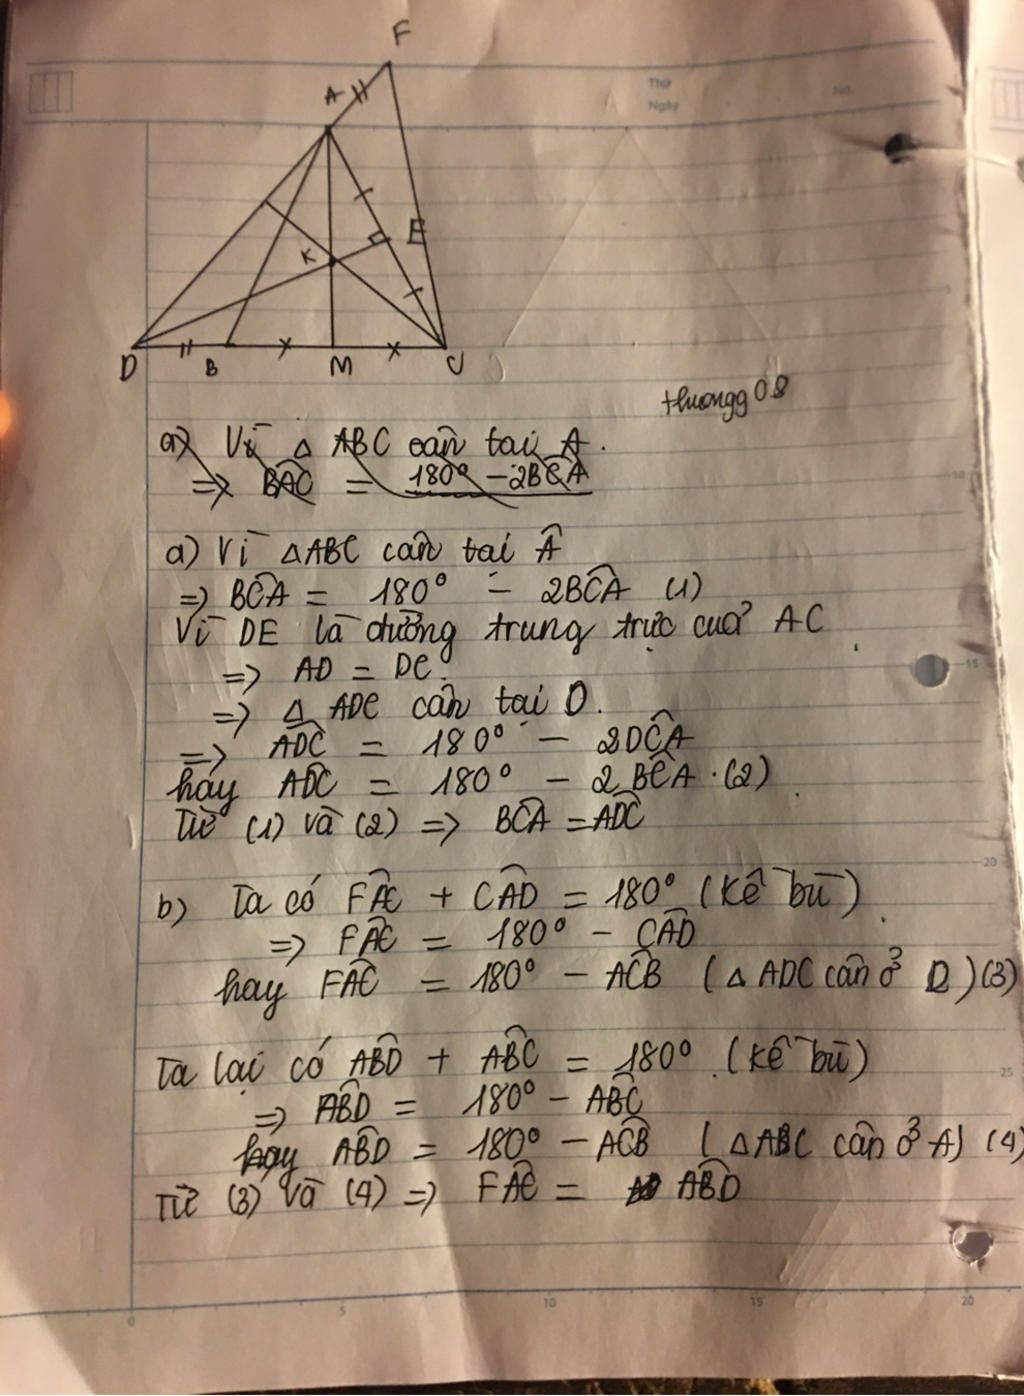 F
A
Thứ
Ngày
No.
E
K
D
B
M
C
thuongg08
a) Vì △ ABC cân tại A.
=> BAC = 180° - 2BCA
a) Vì △ABC cân tại Â
=> BĈA = 180° - 2BĈA (1)
Vì DE là đường trung trực của AC
=> AD = DC.
=> △ ADC cân tại D.
=> AD̂C = 180° - 2DĈA
hay AD̂C = 180° - 2BĈA. (2)
Từ (1) và (2) => BĈA = AD̂C
b) Ta có FÂC + CÂD = 180° (kề bù).
=> FÂC = 180° - CÂD
hay FÂC = 180° - AĈB (△ ADC cân ở D) (3)
Ta lại có AB̂D + AB̂C = 180° (kề bù)
=> AB̂D = 180° - AB̂C
hay AB̂D = 180° - AĈB (△ABC cân ở A) (4)
Từ (3) và (4) => FÂC = AB̂D
10
15
20
25
0
5
10
15
20